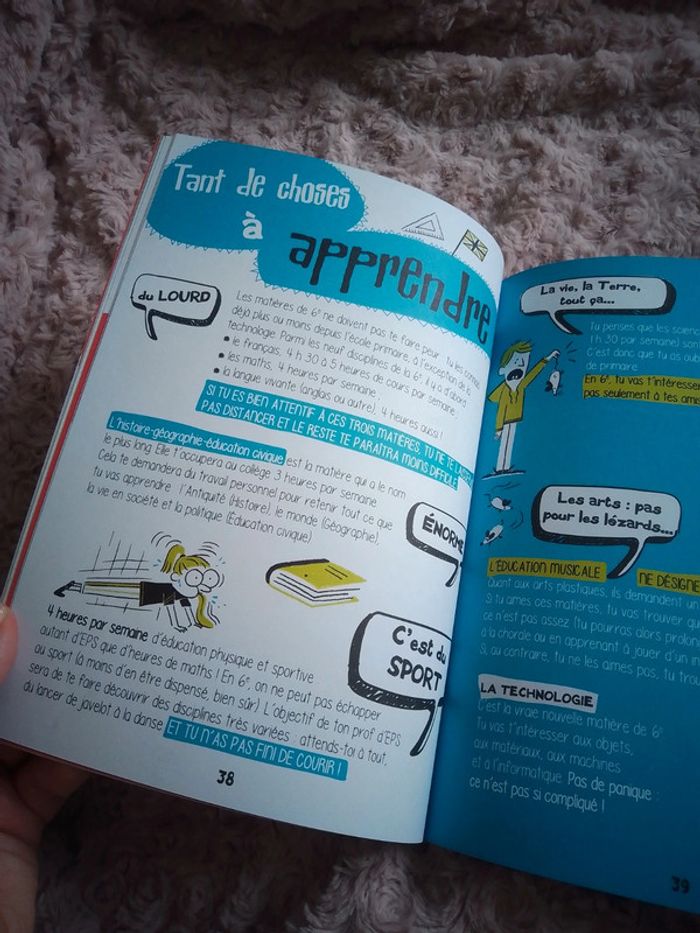 Tant de choses
à
apprendre
du LOURD
Les matières de 6e ne doivent pas te faire peur : tu les connais
déjà plus ou moins depuis l'école primaire, à l'exception de la
technologie. Parmi les neuf disciplines de la 6e, il y a d'abord
• le français, 4 h 30 à 5 heures de cours par semaine ;
• les maths, 4 heures par semaine ;
• la langue vivante (anglais ou autre), 4 heures aussi !
SI TU ES BIEN ATTENTIF À CES TROIS MATIÈRES, TU NE TE LAISSERAS
PAS DISTANCER ET LE RESTE TE PARAÎTRA MOINS DIFFICILE
L'histoire-géographie-éducation civique est la matière qui a le nom
le plus long. Elle t'occupera au collège 3 heures par semaine.
Cela te demandera du travail personnel pour retenir tout ce que
tu vas apprendre : l'Antiquité (Histoire), le monde (Géographie),
la vie en société et la politique (Éducation civique)
ÉNORME
4 heures par semaine d'éducation physique et sportive
autant d'EPS que d'heures de maths ! En 6e, on ne peut pas échapper
au sport (à moins d'en être dispensé, bien sûr). L'objectif de ton prof d'EPS
sera de te faire découvrir des disciplines très variées : attends-toi à tout,
du lancer de javelot à la danse ET TU N'AS PAS FINI DE COURIR !
C'est du
SPORT
38
La vie, la Terre,
tout ça...
Tu penses que les
1 h 30 par semaine) sont
C'est donc que tu as
de primaire
En 6e, tu vas t'intéresser
pas seulement à tes
Les arts : pas
pour les lézards...
L'ÉDUCATION MUSICALE NE DÉSIGNE
Quant aux arts plastiques, ils demandent
Si tu aimes ces matières, tu vas trouver
ce n'est pas assez (tu pourras alors
à la chorale ou en apprenant à jouer d'un
Si, au contraire, tu ne les aimes pas, tu
LA TECHNOLOGIE
C'est la vraie nouvelle matière de 6e.
Tu vas t'intéresser aux objets,
aux matériaux, aux machines
et à l'informatique. Pas de panique :
ce n'est pas si compliqué !
39